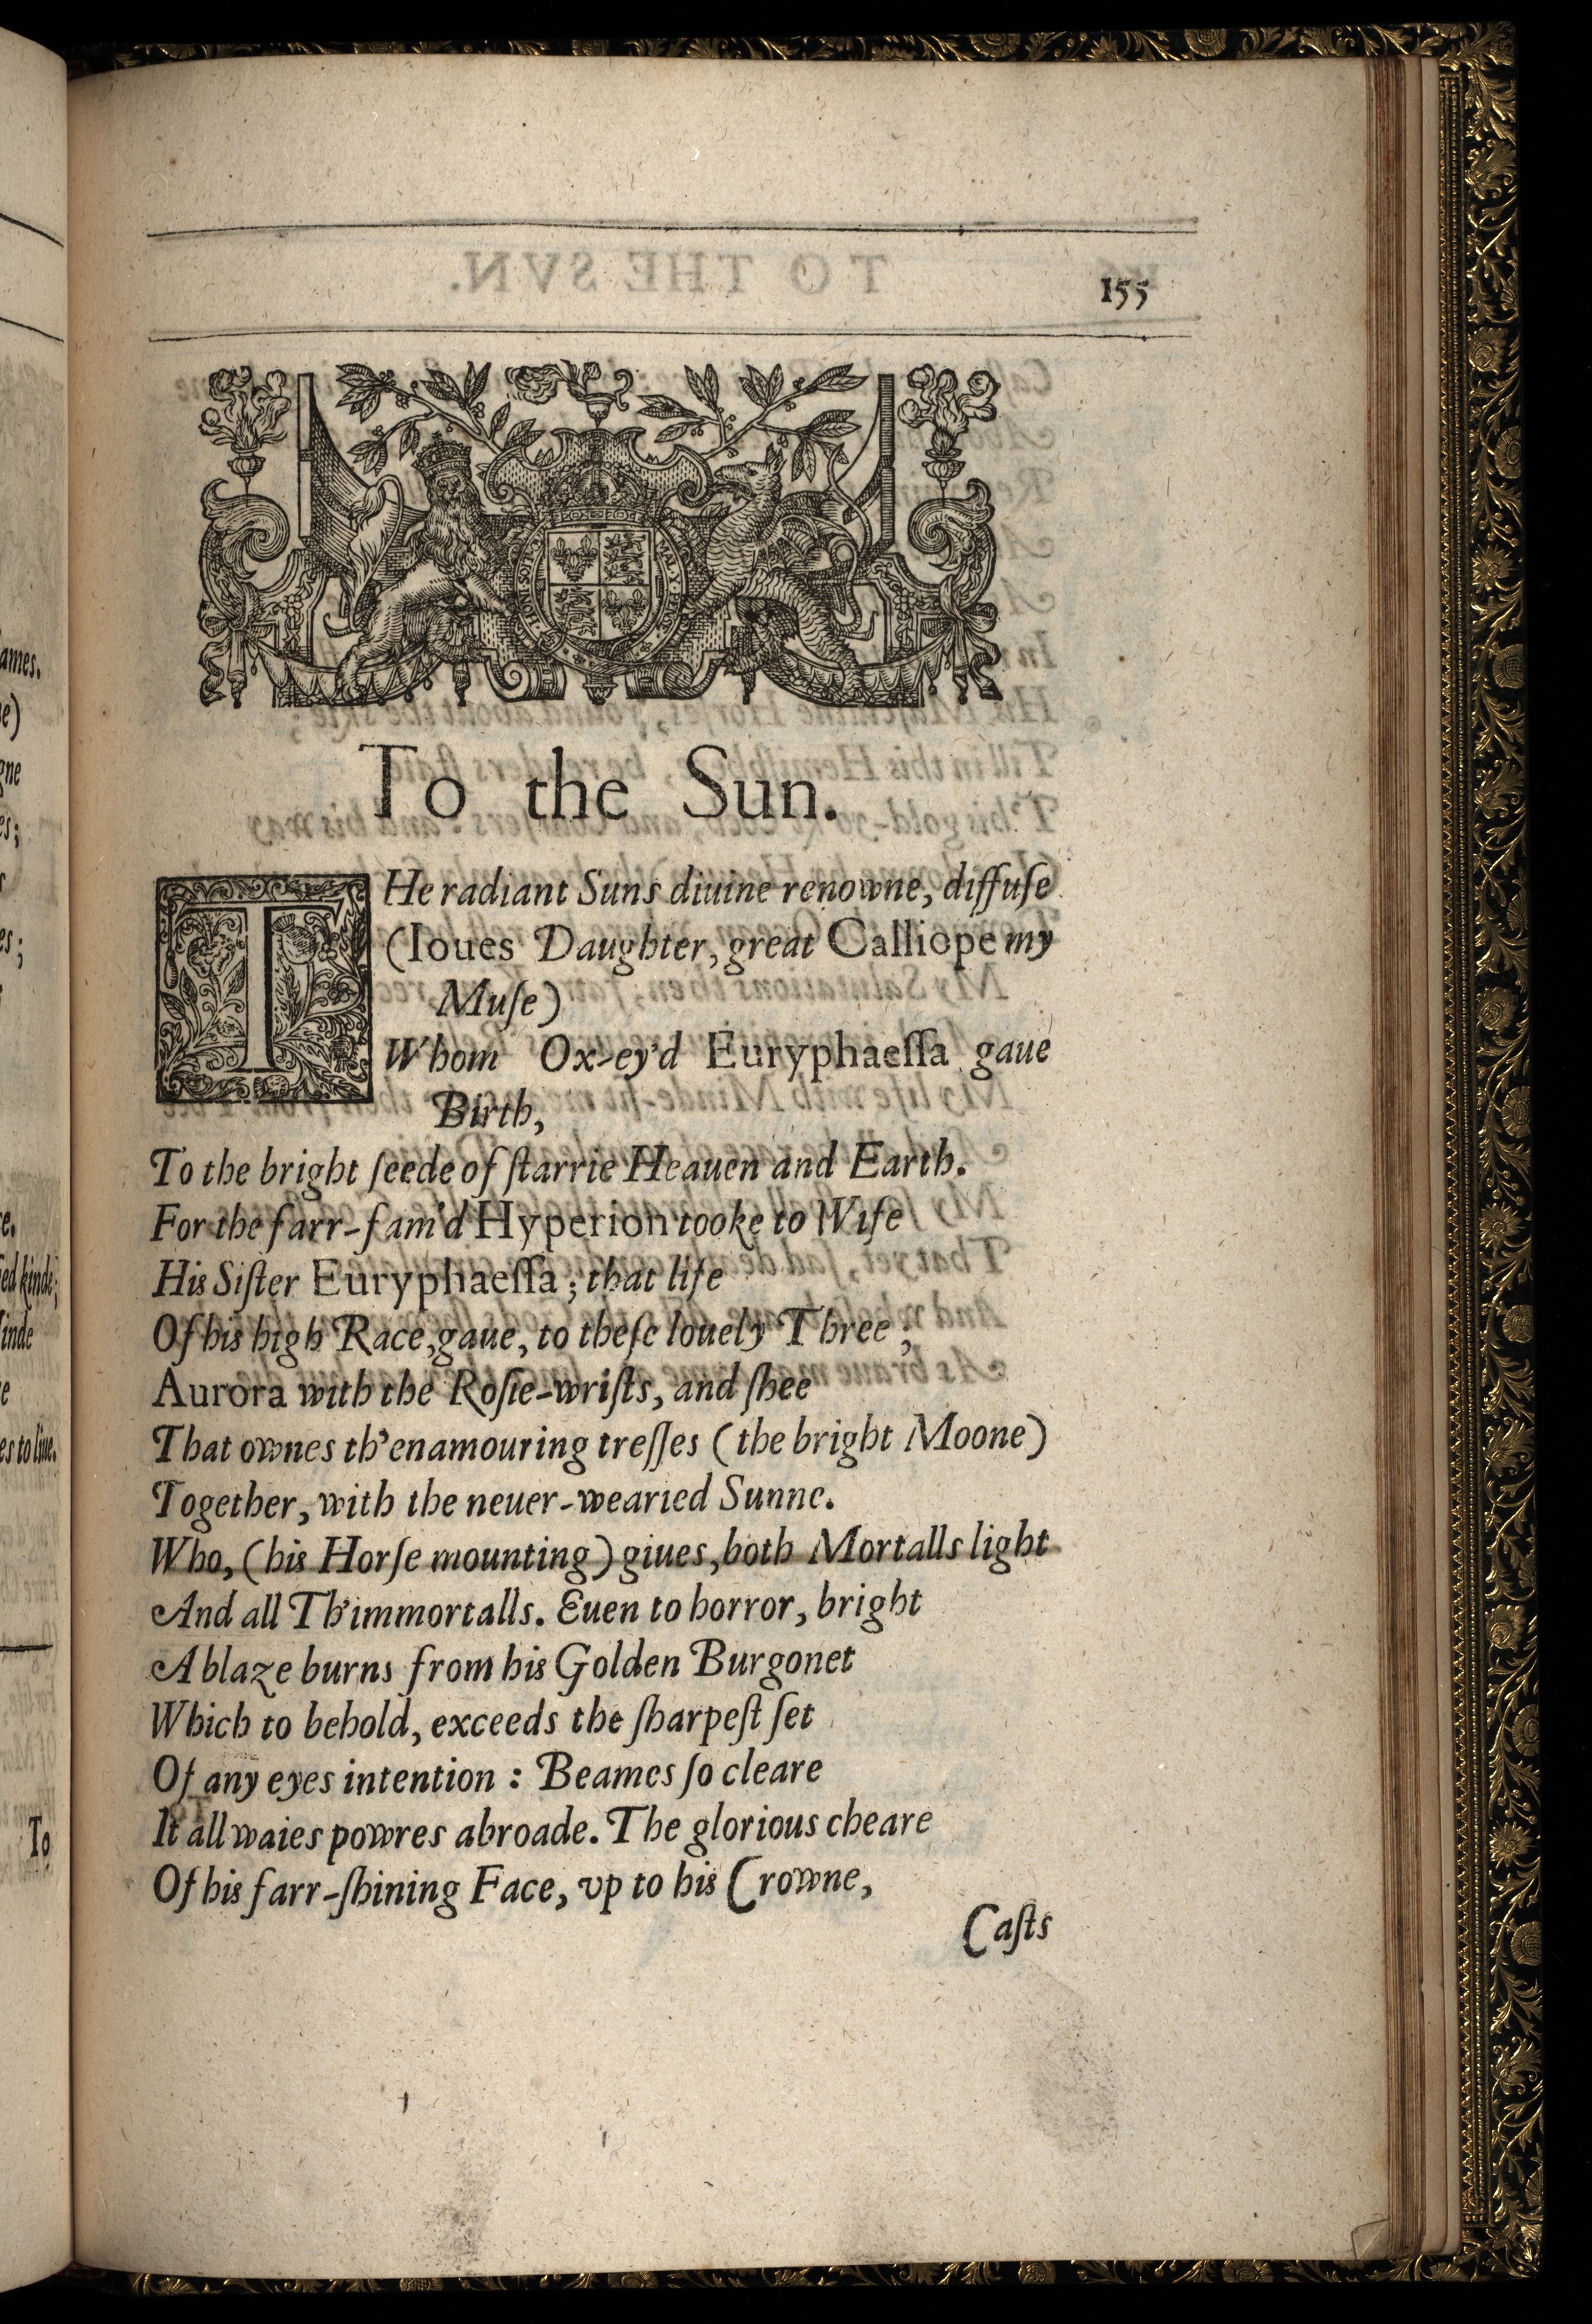 155
To the Sun.
THe radiant Suns diuine renowne, diffuſe
(Ioues Daughter, great Calliope my
Muſe)
Whom Ox-ey'd Euryphaeſſa gaue
Birth,
To the bright ſeede of ſtarrie Heauen and Earth.
For the farr-fam'd Hyperion tooke to Wife
His Siſter Euryphaeſſa; that life
Of his high Race, gaue, to theſe louely Three;
Aurora with the Roſie-wriſts, and ſhee
That ownes th'enamouring treſſes (the bright Moone)
Together, with the neuer-wearied Sunne.
Who, (his Horſe mounting) giues, both Mortalls light
And all Th'immortalls. Euen to horror, bright
A blaze burns from his Golden Burgonet
Which to behold, exceeds the ſharpeſt ſet
Of any eyes intention: Beames ſo cleare
It all waies powres abroade. The glorious cheare
Of his farr-ſhining Face, vp to his Crowne,
Caſts
To